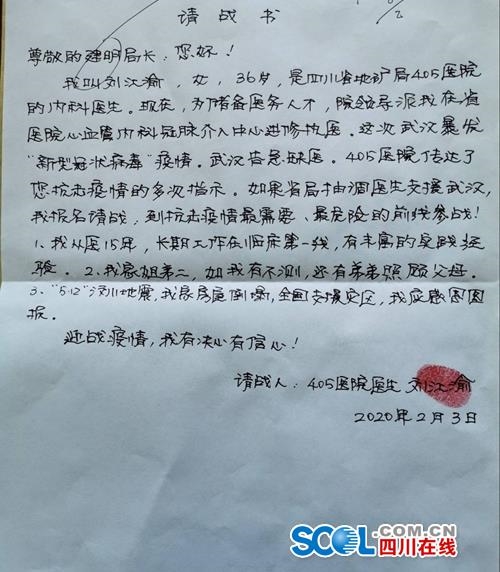 请战书
尊敬的建明局长：您好！
我叫刘江渝，女，36岁，是四川省地矿局405医院
的内科医生。现在，为储备医务人才，院领导派我在省
医院心血管内科冠脉介入中心进修执医。这次武汉暴发
“新型冠状病毒”疫情。武汉告急缺医。405医院传达了
您抗击疫情的多次指示。如果省局抽调医生支援武汉，
我报名请战，到抗击疫情最需要、最危险的前线参战！
1、我从医15年，长期工作在临床第一线，有丰富的实践经
验。2、我家姐弟二，如我有不测，还有弟弟照顾父母。
3、“5·12”汶川地震，我家房屋倒塌，全国支援灾区，我应感恩图
报。
迎战疫情，我有决心有信心！
请战人：405医院医生 刘江渝
2020年2月3日
SCOL.COM.CN
四川在线